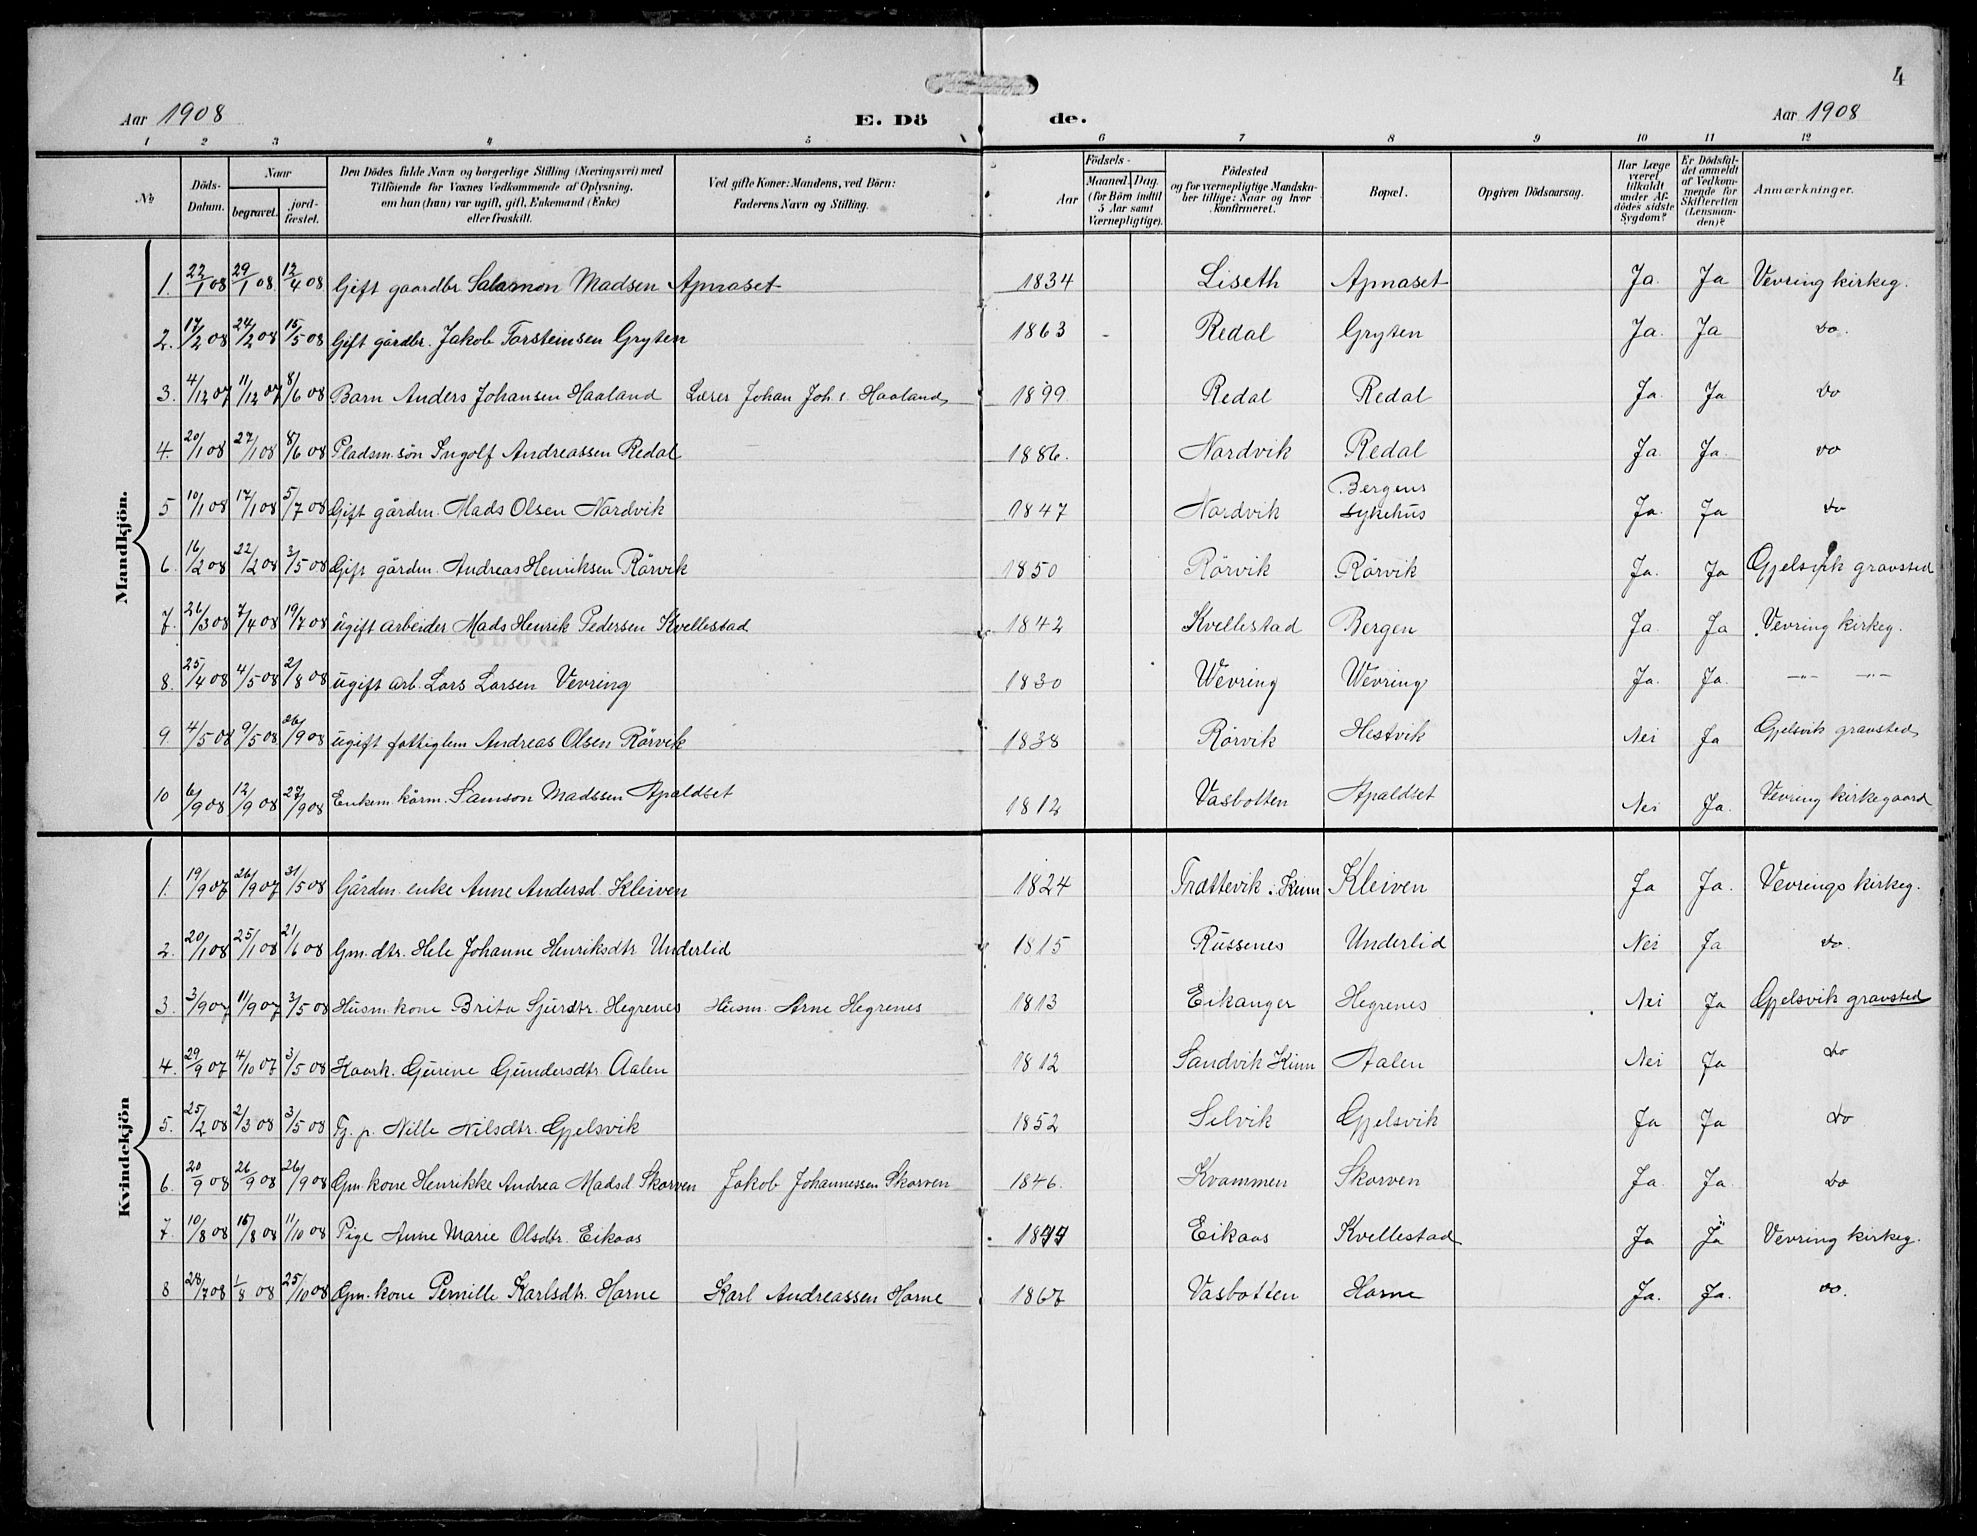 4
Aar 1908 E. Dö de. Aar 1908
1 2 3 4 5 6 7 8 9 10 11 12
No
Döds-Datum.
Naar
begravet.
jord-fæstet.
Den Dödes fulde Navn og borgerlige Stilling (Næringsvei) med
Tilföiende for Voxnes Vedkommende af Oplysning,
om han (hun) var ugift, gift, Enkemand (Enke)
eller fraskilt.
Ved gifte Koner: Mandens, ved Börn:
Faderens Navn og Stilling.
Födsels-
Aar
Maaned. Dag.
(for Börn indtil
5 Aar samt
Værnepligtige).
Födested
og for værnepligtige Mandska-
ber tillige: Naar og hvor
konfirmeret.
Bopæl.
Opgiven Dödsaarsag.
Har Læge
været
tilkaldt
under Af-
dödes sidste
Sygdom?
Er Dödsfal-
det anmeldt
af Vedkom-
mende for
Skifteretten
(Lensman-
den)?
Anmærkninger.
Mandkjön.
1. 22/1 08 29/1 08 12/4 08 Gift gaardbr Salamon Madsen Apnaset 1834 Liseth Apnaset Ja. Ja Vevring kirkeg.
2. 17/2 08 24/2 08 15/5 08 Gift gårdbr. Jakob Torsteinsen Gryten 1863 - Redal Gryten Ja. Ja do.
3. 4/12 07 11/12 07 8/6 08 Barn Anders Johansen Haaland Lærer Johan Joh.s. Haaland 1899 Redal Redal Ja. Ja do
4. 20/1 08 27/1 08 8/6 08 Pladsm. sön Ingolf Andreassen Redal 1886. Nordvik Redal Ja. Ja. do
5 10/1 08 17/1 08 5/7 08 Gift gårdm. Mads Olsen Nordvik 1847 Nordvik Bergens sykehus Ja. Ja do
6. 16/2 08 22/2 08 3/5 08 Gift gårdm. Andreas Henriksen Rörvik 1850 Rörvik Rörvik Ja. Ja Gjelsvik gravsted
7. 26/3 08 7/4 08 19/7 08 ugift arbeider Mads Henrik Pedersen Kvellestad 1842 Kvellestad Bergen Ja. Ja Vevring kirkeg.
8. 25/4 08 4/5 08 2/8 08 ugift arb. Lars Larsen Vevring 1830 Wevring Wevring Ja. Ja. —"— —"—
9. 4/5 08 9/5 08 26/9 08 ugift fattiglem Andreas Olsen Rörvik 1838 Rörvik Hestvik Nei Ja Gjelsvik gravsted
10 6/9 08 12/9 08 27/9 08 Enkem. kårm. Samson Madssen Apaldset 1812 Vasbotten Apaldset Nei Ja. Vevring kirkegaard
Kvindekjön
1. 19/9 07 26/9 07 31/5 08 Gårdm. enke Anne Andersd. Kleiven 1824 Trattevik i Kinn Kleiven Ja Ja. Vevrings kirkeg.
2. 20/1 08 25/1 08 21/6 08 Gm. dtr. Hele Johanne Henriksdtr Underlid 1815 Russenes Underlid Nei Ja do.
3. 3/9 07 11/9 07 3/5 08 Husm. kone Brita Sjurdtr. Hegrenes Husm. Arne Hegrenes 1813 Eikanger Hegrenes Nei Ja Gjelsvik gravsted
4. 29/9 07 4/10 07 3/5 08 Kaark. Gurine Gundersdtr. Aalen 1812 Sandvik Kinn Aalen Nei Ja do
5. 25/2 08 2/3 08 3/5 08 Tj. p. Nille Nilsdtr. Gjelsvik 1852 Selvik Gjelsvik Ja Ja do
6. 20/9 08 26/9 08 26/9 08 Gm. kone Henrikke Andrea Madsd. Skorven Jakob Johannessen Skorven 1846. Kvammen Skorven Ja. Ja. do
7. 10/8 08 15/8 08 11/10 08 Pige Anne Marie Olsdtr. Eikaas Eikaas Kvellestad Ja Ja Vevring kirkeg.
8 28/7 08 1/8 08 25/10 08 Gm. kone Pernille Karlsdtr. Horne Karl Andreassen Horne 1867 Vasbotten Horne Ja. Ja. do.